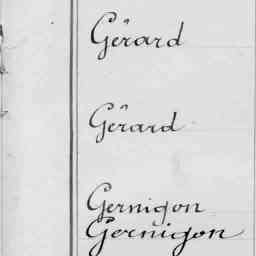 Gérard
Gérard
Gernigon
Gernigon